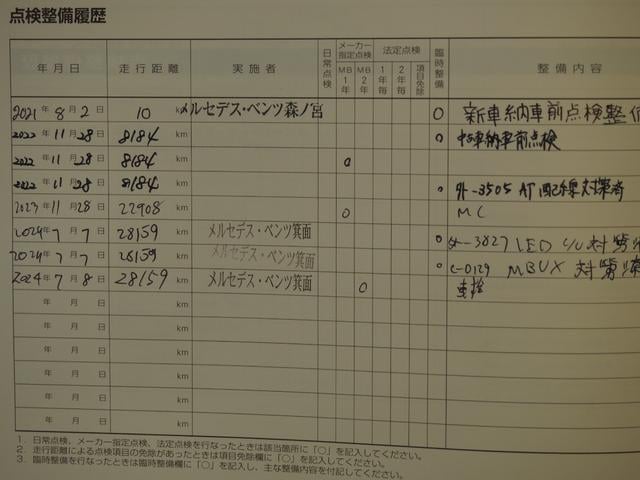 点検整備履歴
年月日 走行距離 実施者 日常点検 メーカー指定点検 MB1年 MB2年 法定点検 1年毎 2年毎 項目免除 臨時整備 整備内容
2021年 8月 2日 10 km メルセデス・ベンツ森ノ宮 ○ 新車納車前点検整備
2022年 11月 28日 8184 km ○ 中古車納車前点検
2022年 11月 28日 8184 km ○
2022年 11月 28日 8184 km ○ 外-3505 AT配線対策済
2023年 11月 28日 22908 km ○ MC
2024年 7月 7日 28159 km メルセデス・ベンツ箕面 ○ 外-3827 LED C/U 対策済
2024年 7月 7日 28159 km メルセデス・ベンツ箕面 ○ C-0129 MBUX 対策済
2024年 7月 8日 28159 km メルセデス・ベンツ箕面 ○ 車検
年 月 日 km
年 月 日 km
年 月 日 km
年 月 日 km
年 月 日 km
年 月 日 km
1. 日常点検、メーカー指定点検、法定点検を行なったときは該当箇所に「○」を記入してください。
2. 走行距離による点検項目の免除があったときは項目免除欄に「○」を記入してください。
3. 臨時整備を行なったときは臨時整備欄に「○」を記入し、主な整備内容を付記してください。